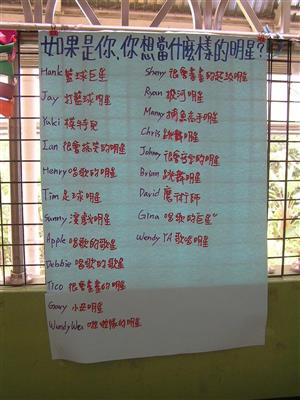 如果是你,你想當什麼樣的明星?
Hank 籃球巨星
Jay 打籃球明星
Yuki 模特兒
Ian 很會搞笑的明星
Henry 唱歌的明星
Tim 足球明星
Sunny 演戲明星
Apple 唱歌的歌星
Debbie 唱歌的歌星
Tico 很會畫畫的明星
Gary 小丑明星
Wendy Wei 啦啦隊的明星
Sherry 很會畫畫的超級明星
Ryan 搬河明星
Manny 摘魚高手明星
Chris 跳舞明星
Johnny 很會的明星
Brian 跳舞明星
David 魔術師
Gina 唱歌的巨星
Wendy YA 歌唱明星